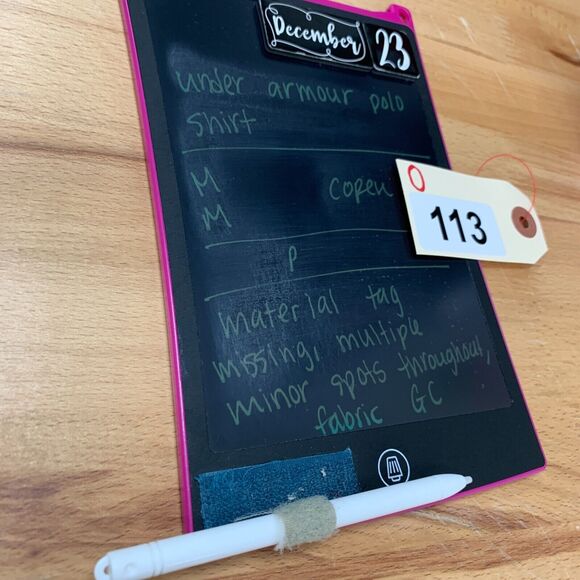 December 23
under armour polo
shirt
M copen
M
113
P
material tag
missing, multiple
minor spots throughout,
fabric GC